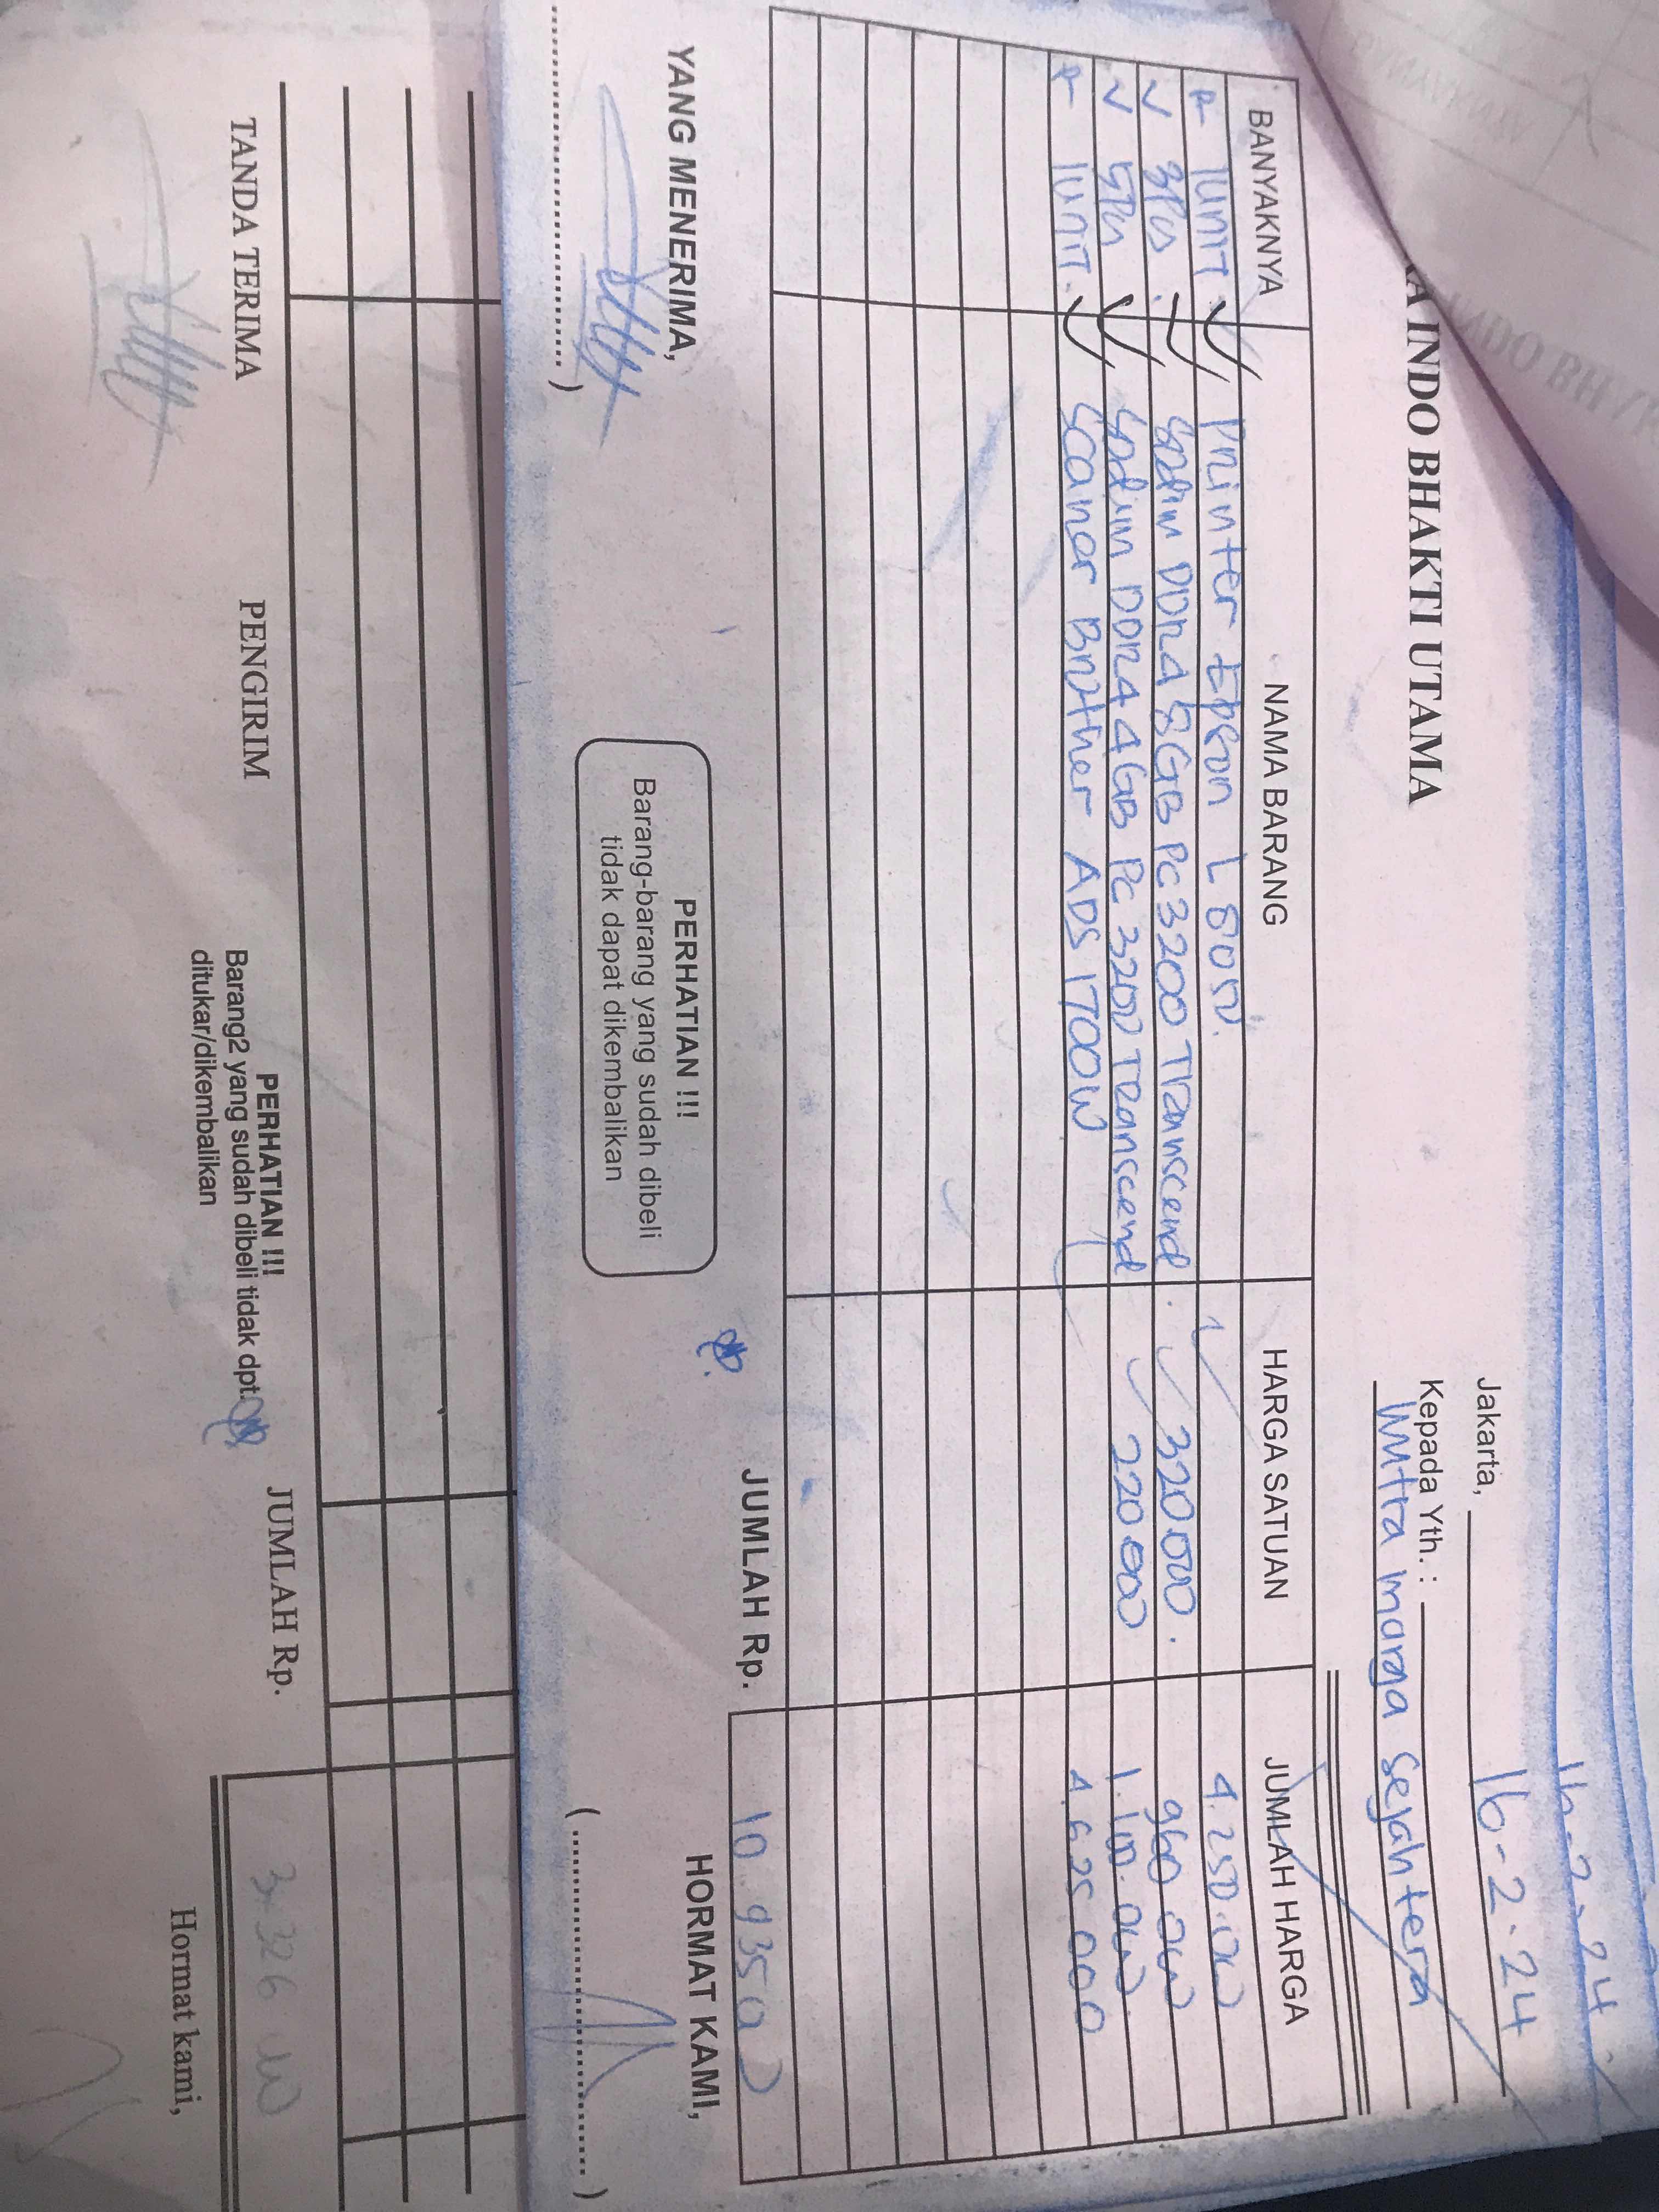 INDO BHAKTI UTAMA
16-2-24
Jakarta, 16-2-24
Kepada Yth. :
Mitra Imarga Sejahtera
BANYAKNYA NAMA BARANG HARGA SATUAN JUMLAH HARGA
1 UNIT Printer Epson L 4.250.000
3 Pcs Sodim DDR4 8GB PC 3200 Transcend 320.000 960.000
5 Pcs Sodim DDR4 4GB PC 3200 Transcend 220.000 1.100.000
1 UNIT Scaner Brother ADS 1700W 4.625.000
JUMLAH Rp. 10.935.000
YANG MENERIMA,
PERHATIAN !!!
Barang-barang yang sudah dibeli
tidak dapat dikembalikan
HORMAT KAMI,
TANDA TERIMA
PENGIRIM
PERHATIAN !!!
Barang2 yang sudah dibeli tidak dpt.
ditukar/dikembalikan
JUMLAH Rp.
Hormat kami,